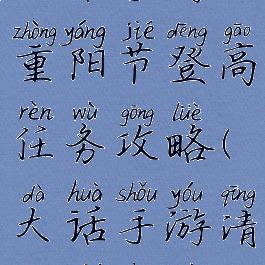 zhòng yáng jié dēng gāo
重阳节登高
rèn wù gōng lüè
任务攻略(
dà huà shǒu yóu qīng
大话手游清